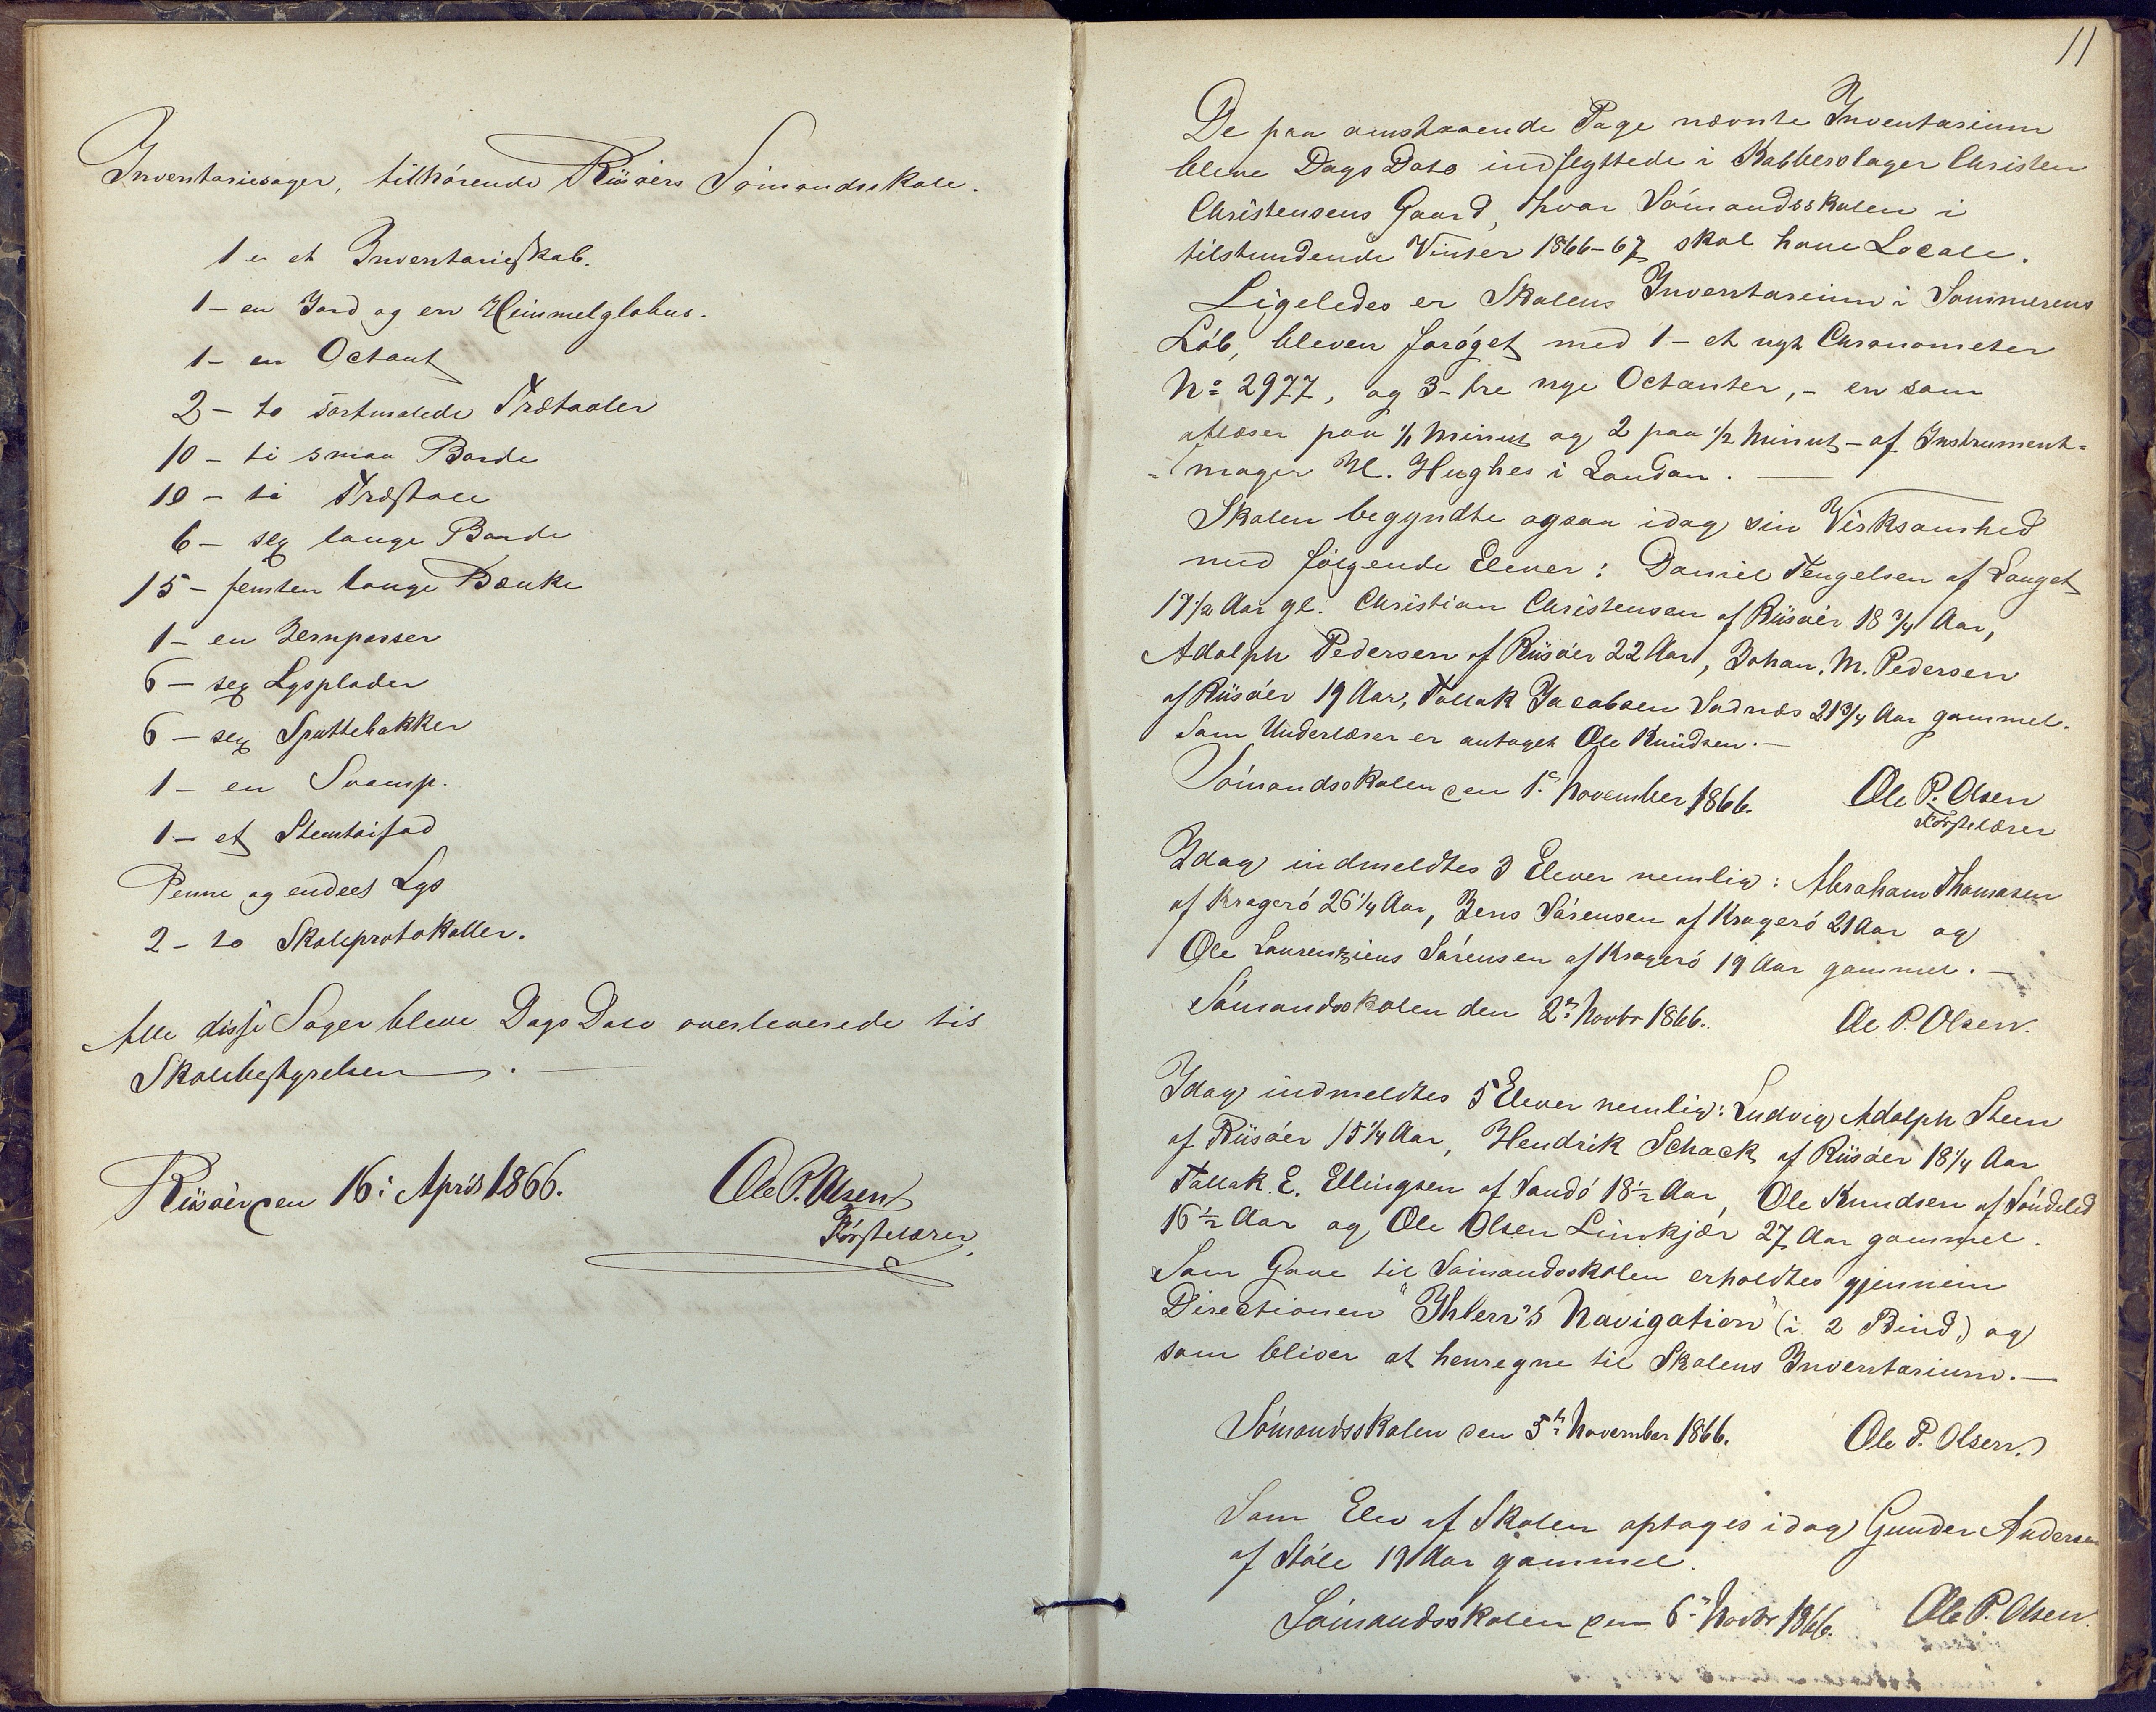 Inventariesager, tilhörende Riisöers Sömandsskole.
1 - et Inventarieskab.
1 - en Jord og en Himmelglobus.
1 - en Octant
2 - to sortmalede Trætavler
10 - ti smaa Borde
10 - ti Træstole
6 - sex lange Borde
15 - femten lange Bænke
1 - en Jernpasser
6 - sex Lysplader
6 - sex Spyttebakker
1 - en Svamp.
1 - et
Penne og endeel Lys
2 - to Skoleprotokoller.
Alle disse Sager bleve Dags Dato overleverede til
Skolebestyrelsen.
Riisöer den 16: April 1866. Ole P. Olsen
Förstelærer
11
De paa omstaaende Page nævnte Inventarium
bleve Dags Dato indflyttede i Kobberslager Christen
Christensens Gaard, hvor Sömandsskolen i
tilstundende Vinter 1866-67 skal have Locale.
Ligeledes er Skolens Inventarium i Sommerens
Löb, bleven foröget med 1 - et nyt Chronometer
No 2977, og 3 - tre nye Octanter, - en som
aflæser paa 1/1 Minut og 2 paa 1/2 Minut - af Instrument-
-mager H. Hughes i London. —
Skolen begyndte ogsaa idag sin Virksomhed
med fölgende Elever: Daniel Tengelsen af Langet
17 1/2 Aar gl. Christian Christensen af Riisöer 18 3/4 Aar,
Adolph Pedersen af Riisöer 22 Aar, Johan. M. Pedersen
af Riisöer 19 Aar, Tallak Jacobsen Sadnæs 21 3/4 Aar gammel.
Som Underlærer er antaget Ole Knudsen. —
Sömandsskolen den 1 November 1866. Ole P. Olsen
Förstelærer
Idag indmeldtes 3 Elever nemlig: Abraham Thomasen
af Kragerö 26 1/4 Aar, Jens Sörensen af Kragerö 21 Aar og
Ole Laurentzius Sörensen af Kragerö 19 Aar gammel. —
Sömandsskolen den 2 Novbr 1866. Ole P. Olsen.
Idag indmeldtes 5 Elever nemlig: Ludvig Adolph Steen
af Riisöer 15 1/4 Aar, Hendrik Schack af Riisöer 18 1/4 Aar
Tallak E. Ellingsen af Sandö 18 1/2 Aar, Ole Knudsen af Söndeled
16 1/2 Aar og Ole Olsen Linskjær 27 Aar gammel.
Som Gave til Sömandsskolen erholdtes gjennem
Directionen "Ihlen's Navigation" (i 2 Bind) og
som bliver at henregne til Skolens Inventarium. —
Sömandsskolen den 5te November 1866. Ole P. Olsen.
Som Elev af Skolen optoges idag Gunder Andersen
af Støle 19 Aar gammel.
Sömandsskolen den 6 Novbr 1866. Ole P. Olsen.